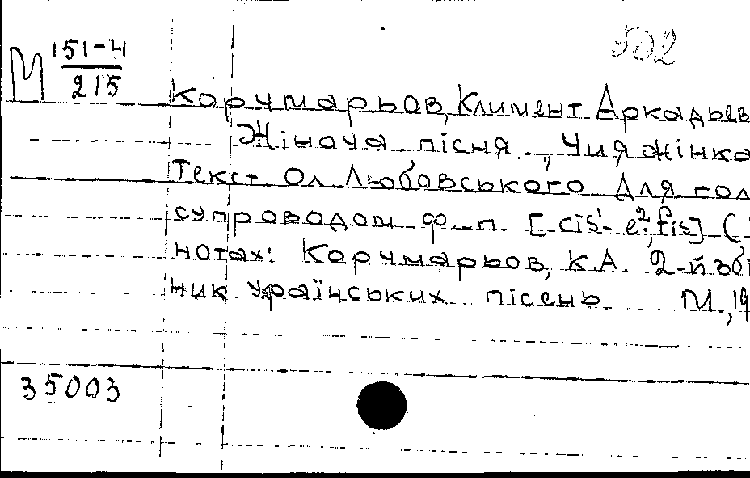 502
М 151-Н
215
Корчмарьов, Климент Аркадьев
Жіноча пісня „ Чия жінка
Текст Ол. Любовського Для гол
супроводом ф.-п. [cis'- e², fis] (
нотах: Корчмарьов, К.А. 2-й збі
ник українських пісень М., 19
35003